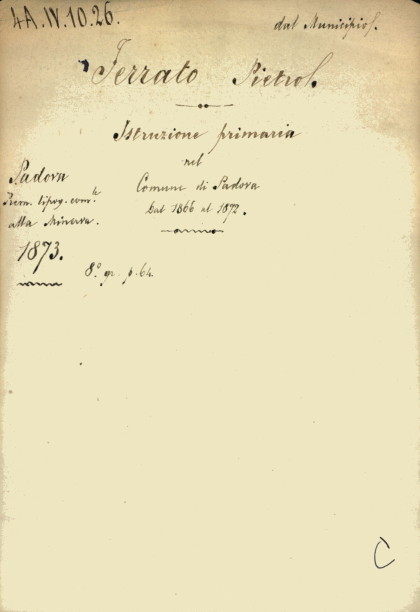 4A.IV.10.26.
dal Municipio.
Ferrato Pietro.
Istruzione primaria
nel
Comune di Padova
dal 1866 al 1872.
Padova
Prem. tipog. com.le
alla Minerva.
1873.
8.° gr. p. 64.
C